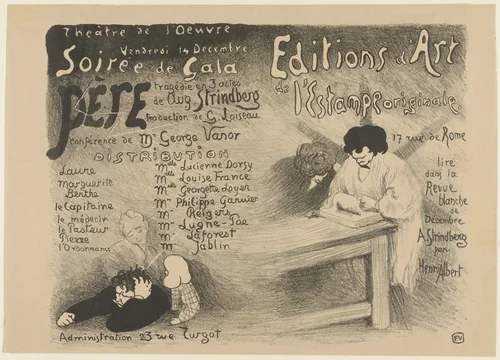 Théâtre de l'Oeuvre
Vendredi 14 Décembre
Soirée de Gala
PÈRE
tragédie en 3 actes
de Aug. Strindberg
traduction de G. Loiseau
conférence de Mr George Vanor
DISTRIBUTION
Laure Mlle Lucienne Dorsy
Marguerite Mlle Louise France
Berthe Mlle Georgette Loyer
le Capitaine Mr Philippe Garnier
le médecin Mr Reigers
le Pasteur Mr Lugné-Poe
Pierre Mr Laforest
l'Ordonnance Mr Jablin
Administration 23 rue Turgot
Editions d'Art
de l'Estampe originale
17 rue de Rome
lire
dans la
Revue
blanche
de
Décembre
A. Strindberg
par
Henri Albert
FV